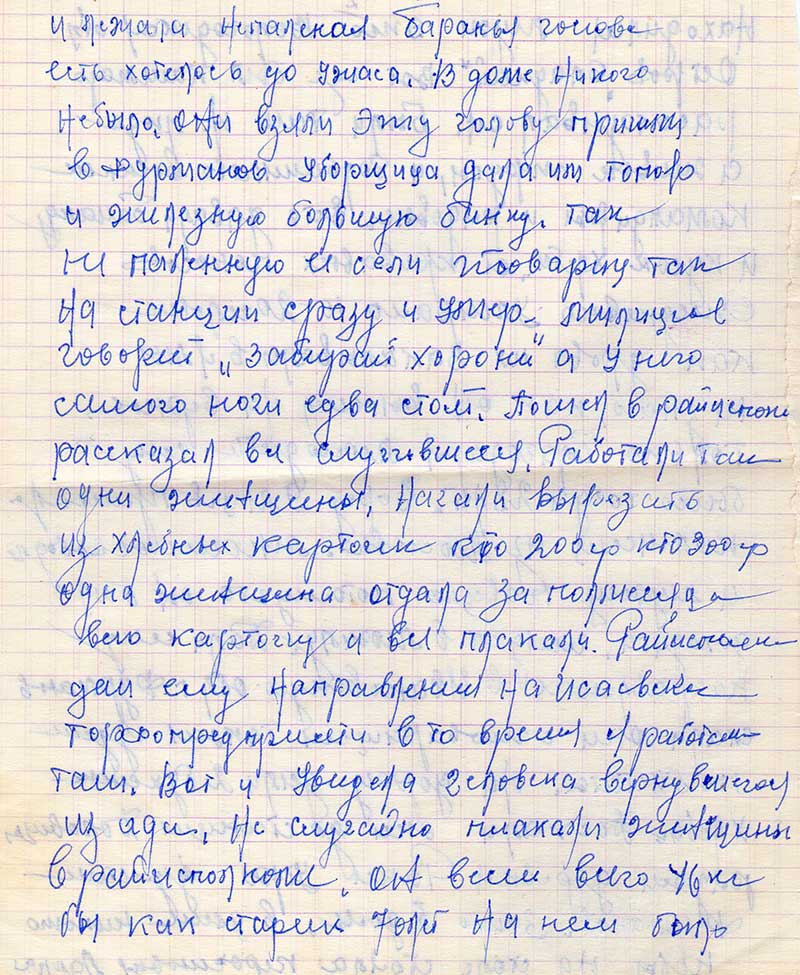 и лежала непаленая баранья голова
есть хотелось до ужаса. В доме никого
небыло, они взяли эту голову пришли
в Фурманов Уборщица дала им топор
и железную большую банку. так
не паленную и сели поварку так
на станции сразу и умер. Милиция
говорит „Забирай хорони" а у него
самого ноги едва стоят. Пошел в райисполком
рассказал все случившееся. Работали там
одни женщины, начали вырезать
из хлебных карточек кто 200гр кто 300гр
одна женщина отдала за полмесяца
всю карточку и все плакали. Райисполком
дал ему направление на Исаевское
торфопредприятие в то время я работала
там. Вот и увидела человека вернувшегося
из ада, не случайно плакали женщины
в райисполкоме. Он весил всего 46 кг
был как старик 70лет на нем было